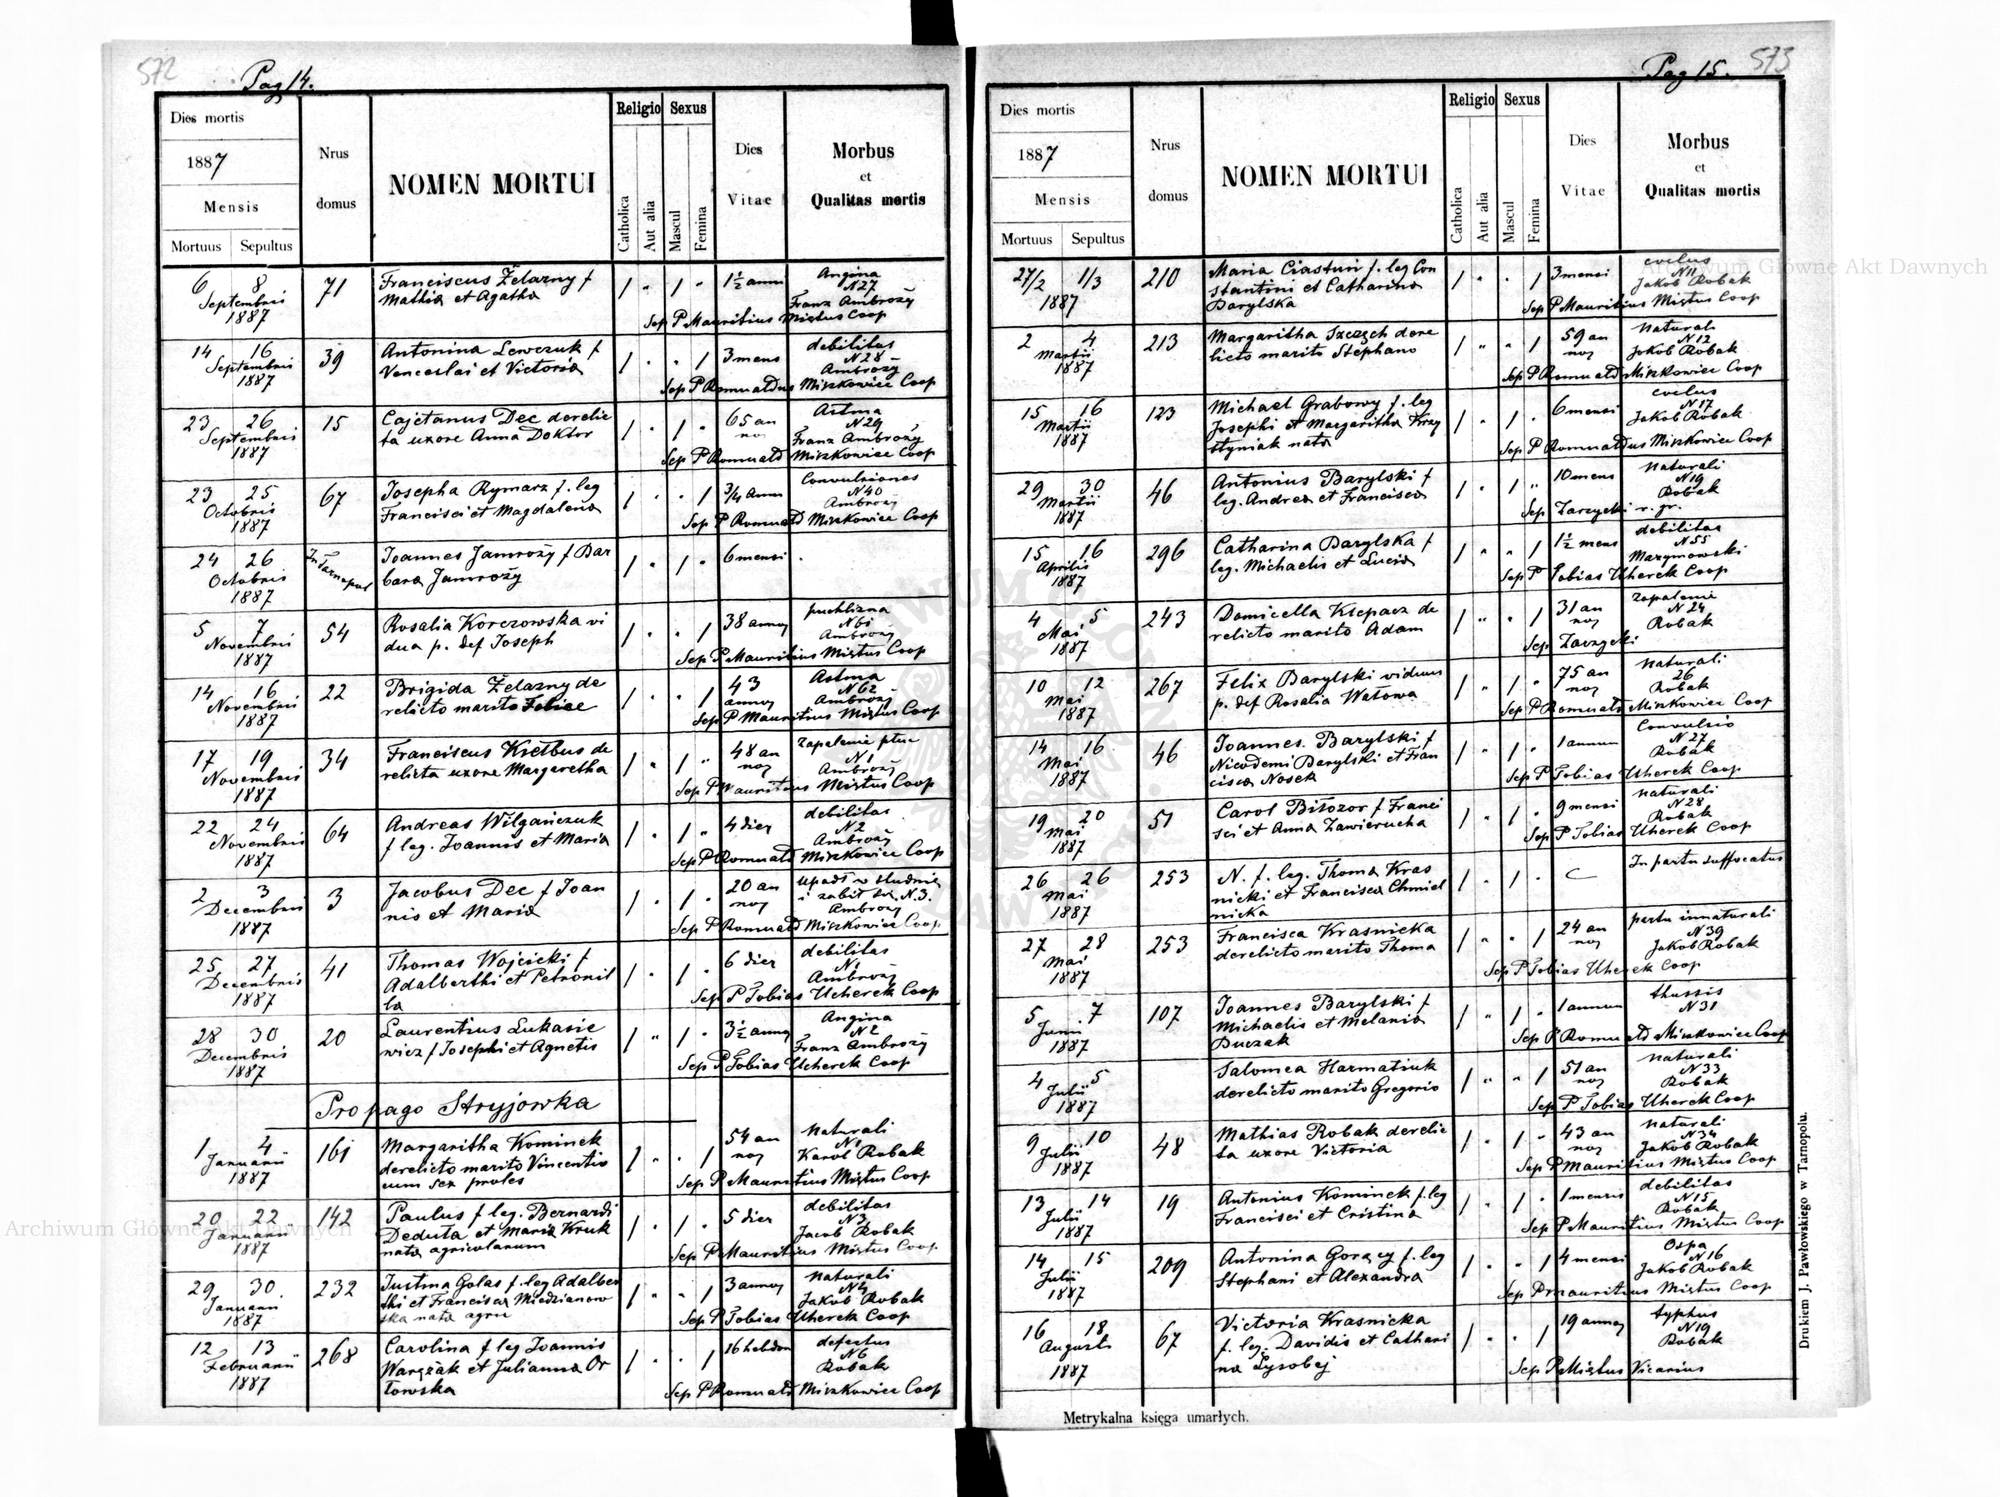 572
Pag 14.
Dies mortis
1887
Mensis
Mortuus Sepultus
Nrus domus
NOMEN MORTUI
Religio
Catholica
Aut alia
Sexus
Mascul
Femina
Dies Vitae
Morbus
et
Qualitas mortis
6 8 Septembris 1887 71 Franciscus Żelazny f
Mathia et Agatha 1 " 1 " 1½ anni Angina
N27
Franz Ambroży
Sep P Mauritius Miętus Coop
14 16 Septembris 1887 39 Antonina Lewczuk f
Venceslai et Victoria 1 " " 1 3 mens debilitas
N28
Ambroży
Sep P Romualdus Miszkowicz Coop
23 26 Septembris 1887 15 Cajetanus Dec derelic
ta uxore Anna Doktor 1 " 1 " 65 an
nos Astma
N29
Franz Ambroży
Sep P Romuald Miszkowicz Coop
23 25 Octobris 1887 67 Josepha Rymarz f. leg
Francisci et Magdalena 1 " " 1 ¾ Anni Convulsiones
N40
Ambroży
Sep P Romuald Miszkowicz Coop
24 26 Octobris 1887 In Tarnopol Joannes Jamroży f Bar
bara Jamroży 1 " 1 " 6 mensi
5 7 Novembris 1887 54 Rosalia Korczowska vi
dua p. def Joseph 1 " " 1 38 annos puchlizna
N61
Ambroży
Sep P Mauritius Miętus Coop
14 16 Novembris 1887 22 Brigida Żelazny de
relicto marito Felice 1 " " 1 43
annos Astma
N62
Ambroży
Sep P Mauritius Miętus Coop
17 19 Novembris 1887 34 Franciscus Kiełbus de
relicta uxore Margaretha 1 " 1 " 48 an
nos Zapalenie płuc
N1
Ambroży
Sep P Mauritius Miętus Coop
22 24 Novembris 1887 64 Andreas Wilgańczuk
f leg. Joannis et Maria 1 " 1 " 4 dies debilitas
N2
Ambroży
Sep P Romuald Miszkowicz Coop
2 3 Decembris 1887 3 Jacobus Dec f Joan
nis et Maria 1 " 1 " 20 an
nos upadł w studnię
i zabił się N.3.
Ambroży
Sep P Romuald Miszkowicz Coop
25 27 Decembris 1887 41 Thomas Wojcicki f
Adalberthi et Petronil
la 1 " 1 " 6 dies debilitas
N1
Ambroży
Sep P Tobias Ucherek Coop
28 30 Decembris 1887 20 Laurentius Lukasie
wicz f Josephi et Agnetis 1 " 1 " 3½ annos Angina
N2
Franz Ambroży
Sep P Tobias Ucherek Coop
Propago Stryjowka
1 4 Januarii 1887 161 Margaritha Kominek
derelicto marito Vincentio
cum sex proles 1 " " 1 54 an
nos Naturali
N1
Karol Robak
Sep P Mauritius Miętus Coop
20 22 Januarii 1887 142 Paulus f leg. Bernardi
Deduta et Maria Kruk
nata agricolarum 1 " 1 " 5 dies debilitas
N3
Jacob Robak
Sep P Mauritius Miętus Coop
29 30 Januarii 1887 232 Justina Golas f. leg Adalber
thi et Francisca Miedzianow
ska nata agri 1 " " 1 3 annos naturali
N4
Jakob Robak
Sep P Tobias Uherek Coop
12 13 Februarii 1887 268 Carolina f leg Joannis
Warszak et Julianna Or
towska 1 " " 1 16 hebdom defectus
N6
Robak
Sep P Romuald Miszkowicz Coop
573
Pag 15.
Dies mortis
1887
Mensis
Mortuus Sepultus
Nrus domus
NOMEN MORTUI
Religio
Catholica
Aut alia
Sexus
Mascul
Femina
Dies Vitae
Morbus
et
Qualitas mortis
27/2 1/3 1887 210 Maria Ciastuń f. leg Con
stantini et Catharina
Barylska 1 " " 1 3 mensi
N11
Jakob Robak
Sep P Mauritius Miętus Coop
2 4 Martii 1887 213 Margaritha Szczęch dere
licto marito Stephano 1 " " 1 59 an
nos naturali
N12
Jakob Robak
Sep P Romuald Miszkowicz Coop
15 16 Martii 1887 123 Michael Grabowy f. leg
Josephi et Margaritha Krzy
styniak nata 1 " 1 " 6 mensi
N17
Jakob Robak
Sep P Romualdus Miszkowicz Coop
29 30 Martii 1887 46 Antonius Barylski f
leg. Andrea et Francisca 1 " 1 " 10 mens naturali
N19
Robak
Sep Zarzycki r. gr.
15 16 Aprilis 1887 296 Catharina Barylska f
leg. Michaelis et Lucia 1 " " 1 1½ mens debilitas
N55
Marymowski
Sep P Tobias Uherek Coop
4 5 Mai 1887 243 Domicella Klepacz de
relicto marito Adam 1 " " 1 31 an
nos Zapalenie
N24
Robak
Sep Zarzycki
10 12 Mai 1887 267 Felix Barylski viduus
p. def Rosalia Watowa 1 " 1 " 75 an
nos naturali
26
Robak
Sep P Romuald Miszkowicz Coop
14 16 Mai 1887 46 Joannes. Barylski f
Nicodemi Barylski et Fran
cisca Nosek 1 " 1 " 1 annum Convulsio
N27
Robak
Sep P Tobias Uherek Coop
19 20 Mai 1887 51 Carol Biłozor f Franci
sci et Anna Zawierucha 1 " 1 " 9 mensi naturali
N28
Robak
Sep P Tobias Uherek Coop
26 26 Mai 1887 253 N. f. leg. Thoma Kras
nicki et Francisca Chmiel
nicka 1 " 1 " In partu suffocatus
27 28 Mai 1887 253 Francisca Krasnicka
derelicto marito Thoma 1 " " 1 24 an
nos partu innaturali
N39
Jakob Robak
Sep P Tobias Uherek Coop
5 7 Junii 1887 107 Joannes Barylski f
Michaelis et Melania
Buczak 1 " 1 " 1 annum thussis
N31
Sep P Romuald Miszkowicz Coop
4 5 Julii 1887 Salomea Harmatiuk
derelicto marito Gregorio 1 " " 1 51 an
nos naturali
N33
Robak
Sep P Tobias Uherek Coop
9 10 Julii 1887 48 Mathias Robak derelic
ta uxore Victoria 1 " 1 " 43 an
nos naturali
N34
Jakob Robak
Sep P Mauritius Miętus Coop
13 14 Julii 1887 19 Antonius Kominek f. leg
Francisci et Cristina 1 " 1 " 1 mensis debilitas
N15
Robak
Sep P Mauritius Miętus Coop
14 15 Julii 1887 209 Antonina Gorący f. leg
Stephani et Alexandra 1 " " 1 4 mensi Ospa
N16
Jakob Robak
Sep P Mauritius Miętus Coop
16 18 Augusti 1887 67 Victoria Krasnicka
f. leg. Davidis et Cathari
na Lysobej 1 " " 1 19 annos typhus
N19
Robak
Sep P Miętus Vicarius
Metrykalna księga umarłych.
Drukiem J. Pawłowskiego w Tarnopolu.
Archiwum Główne Akt Dawnych
Archiwum Główne Akt Dawnych